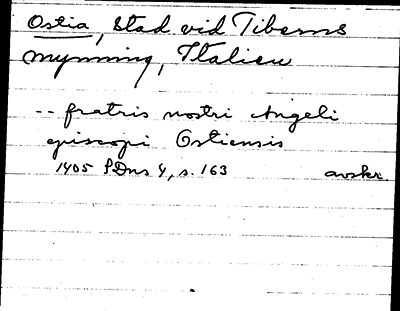 Ostia, Stad vid Tiberns
mynning, Italien
-- fratris nostri Angeli
episcopi Ostiensis
1405 SDns 4, s. 163 avskr.